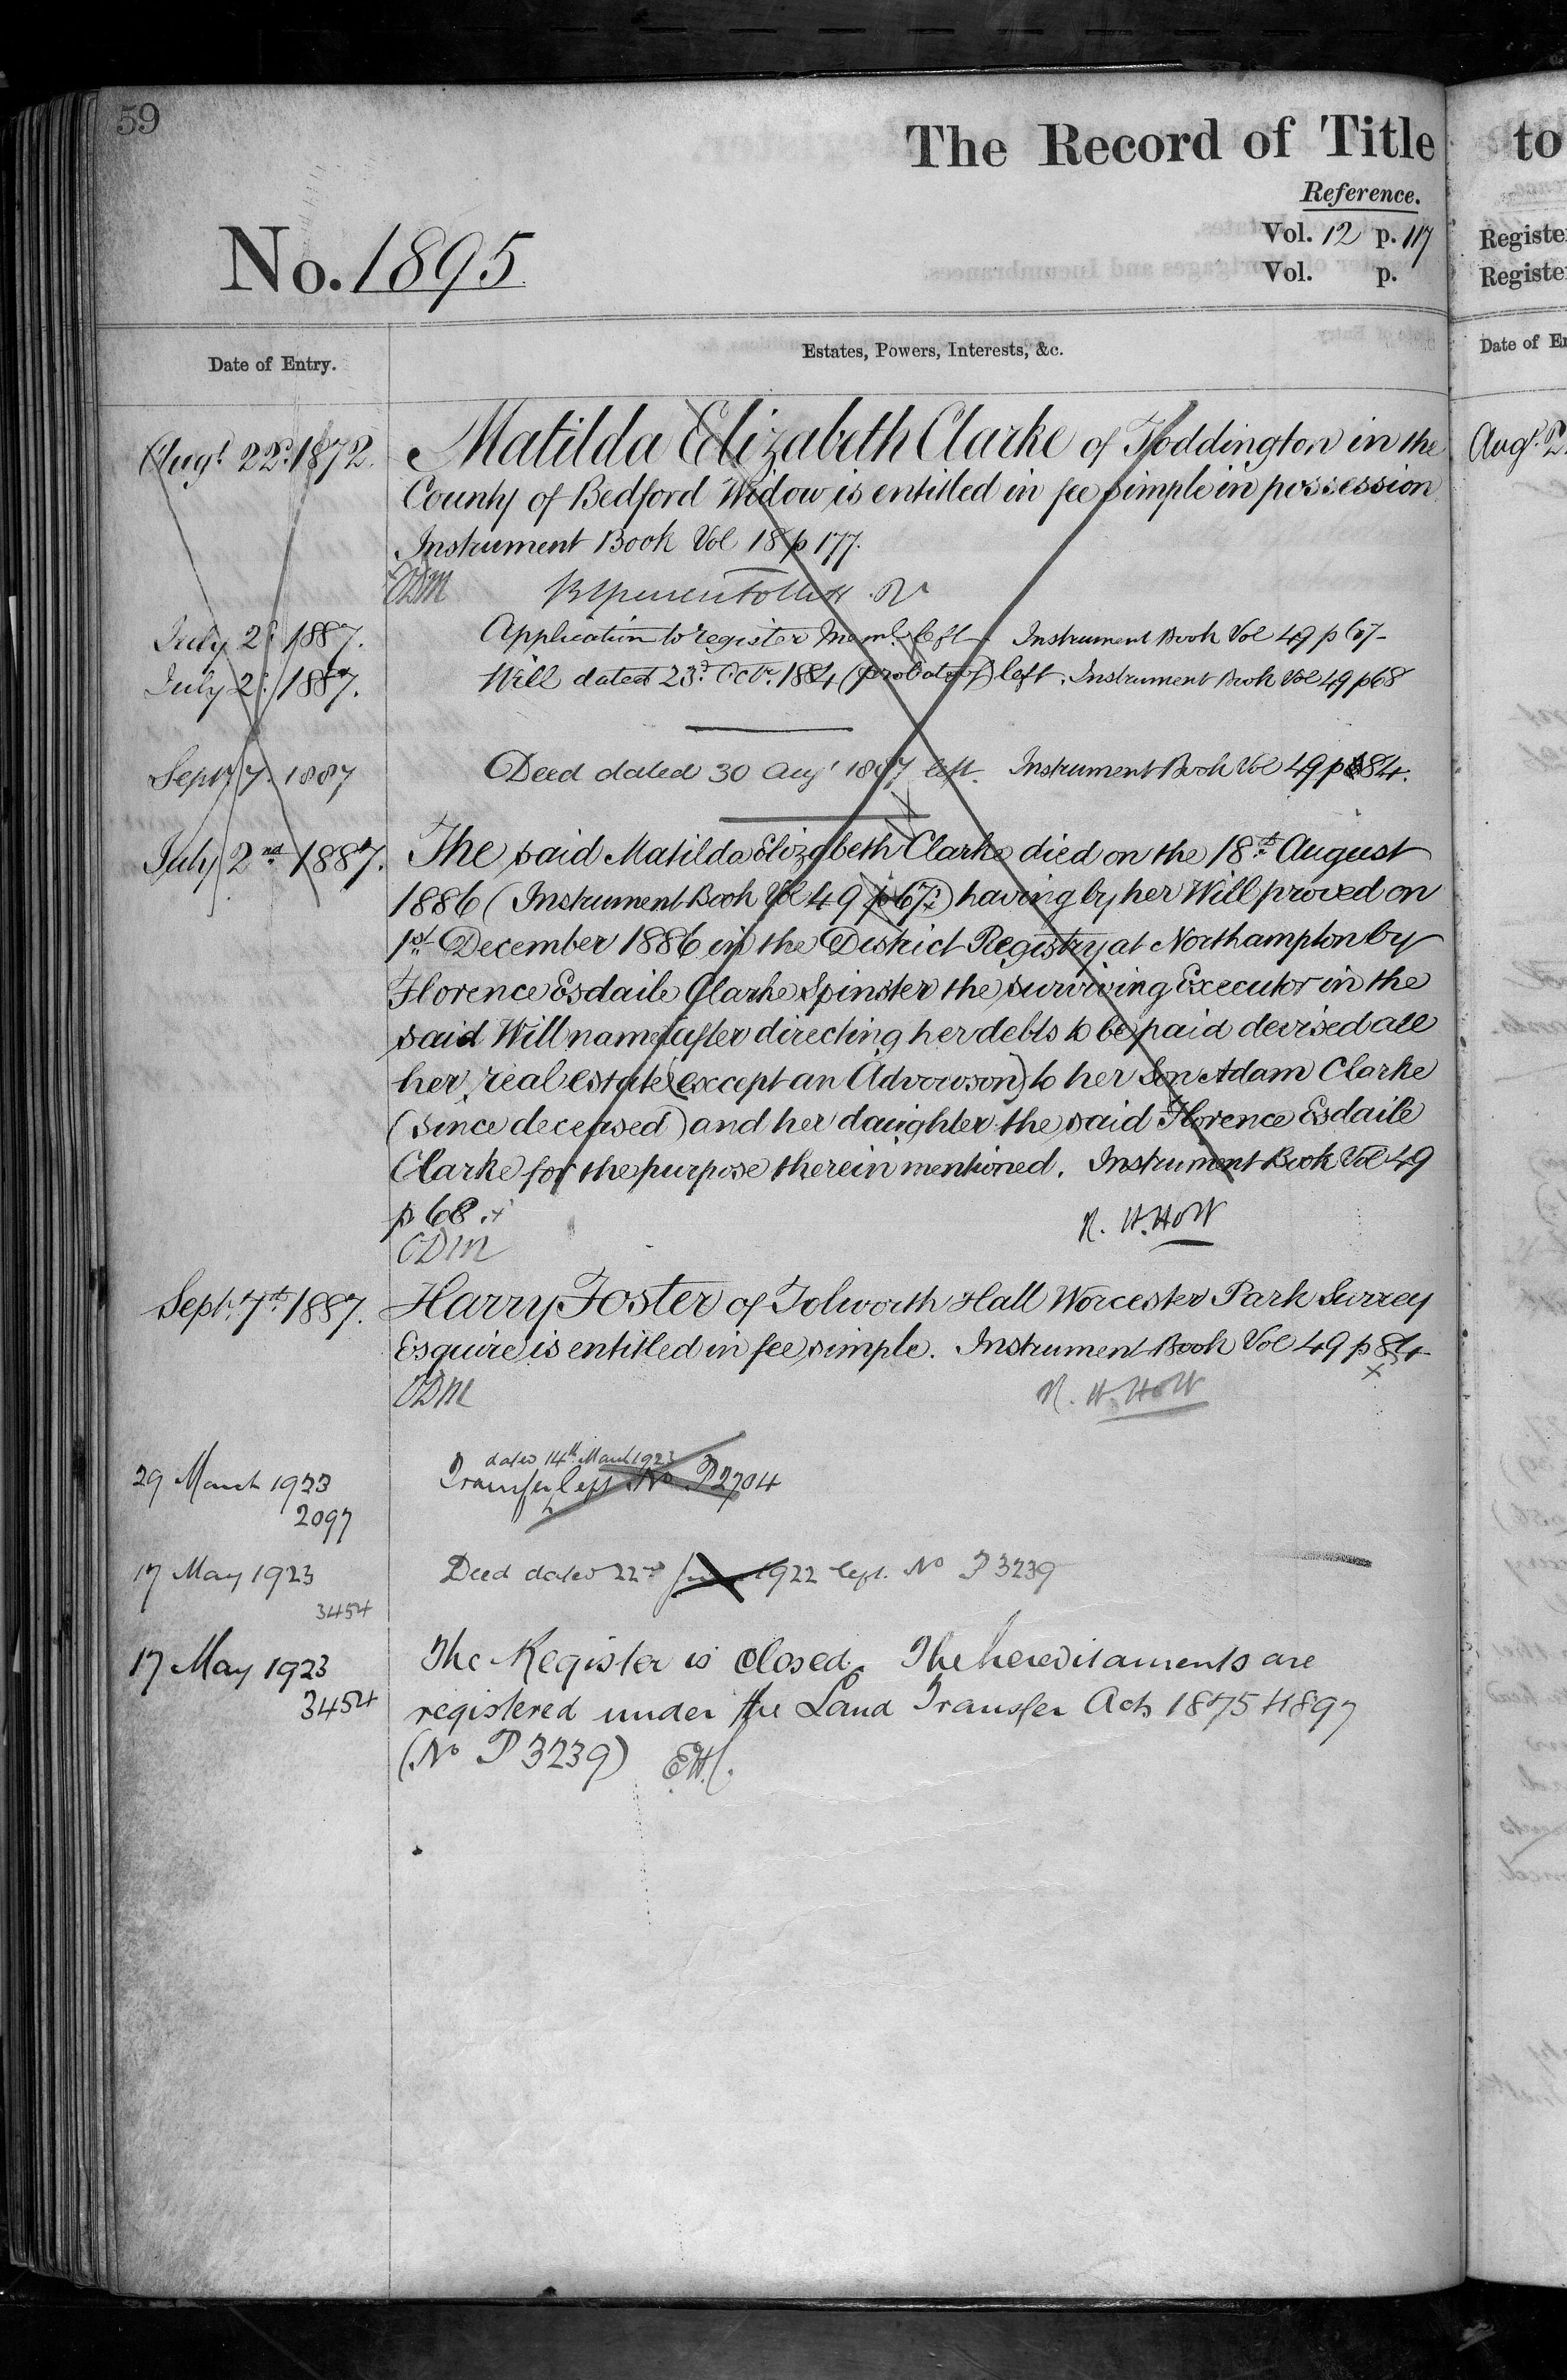 59
The Record of Title
to
Reference.
No. 1895
Vol. 12 p. 117
Vol. p.
Registe
Registe
Date of Entry.
Estates, Powers, Interests, &c.
Date of E
Augt. 22d. 1872.
Matilda Elizabeth Clarke of Toddington in the
Augt. 2
County of Bedford Widow is entitled in fee simple in possession
Instrument Book Vol 18 p 177.
ODM
July 2d. 1887.
Application to register Meml. left. Instrument Book Vol 49 p 67
July 2d. 1887.
Will dated 23d. Octr. 1884 (probate of) left. Instrument Book Vol 49 p 68
Sept 7. 1887
Deed dated 30 Augt 1887 left. Instrument Book Vol 49 p 84.
July 2nd 1887.
The said Matilda Elizabeth Clarke died on the 18th August
1886 (Instrument Book Vol 49 p 67) having by her Will proved on
1st December 1886 in the District Registry at Northampton by
Florence Esdaile Clarke Spinster the surviving Executor in the
said Will named after directing her debts to be paid devised all
her real estate (except an Advowson) to her Son Adam Clarke
(since deceased) and her daughter the said Florence Esdaile
Clarke for the purpose therein mentioned. Instrument Book Vol 49
p 68.
R. H. Holt
ODM
Sept. 7th 1887.
Harry Foster of Tolworth Hall Worcester Park Surrey
Esquire is entitled in fee simple. Instrument Book Vol 49 p 84
ODM
R. H. Holt
dated 14th March 1923
29 March 1923
Transfer left No P2704
2097
17 May 1923
Deed dated 22nd June 1922 left. No P 3239
3454
17 May 1923
The Register is closed. The hereditaments are
3454
registered under the Land Transfer Acts 1875 & 1897
(No P 3239)